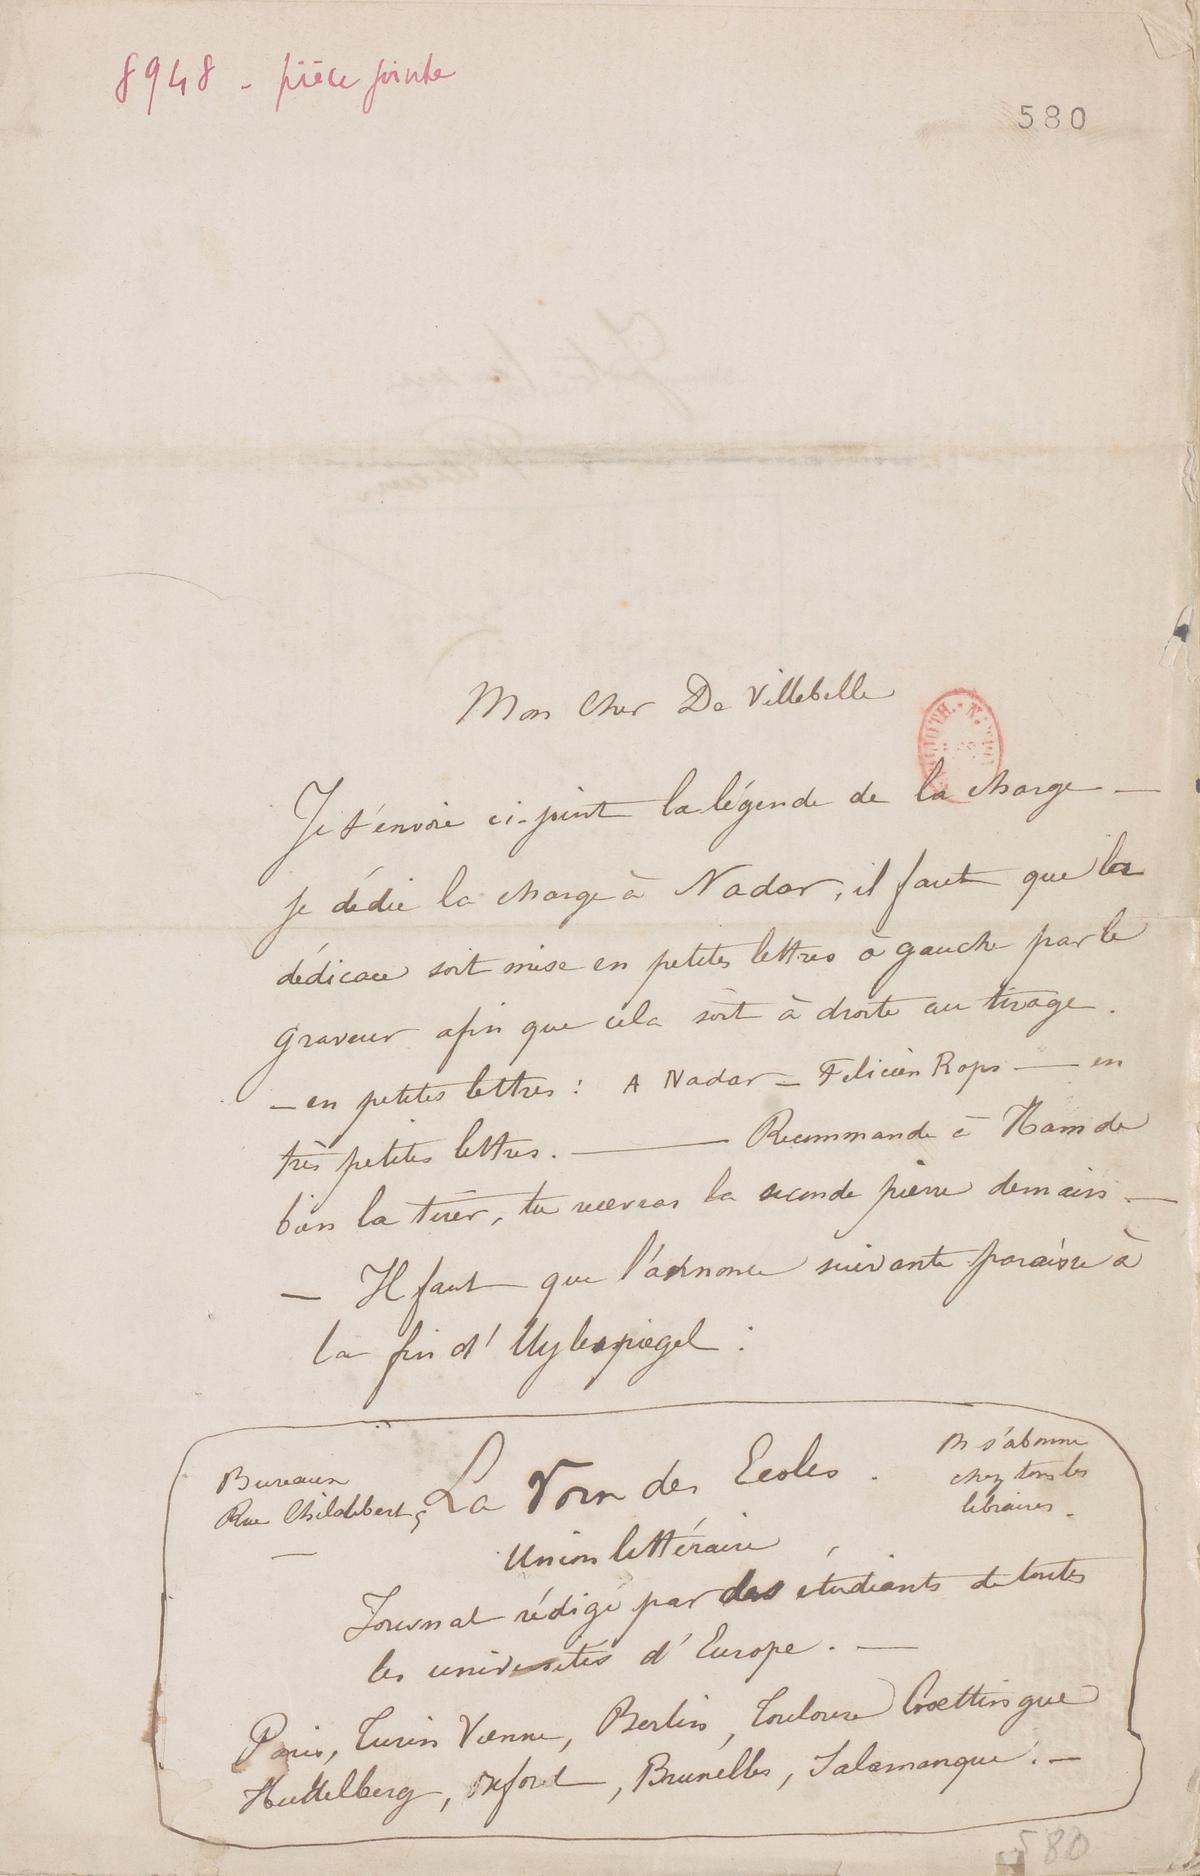 8948 - pièce jointe
580
Mon Cher De Villebelle
Je t'envoie ci-joint la légende de la charge —
je dédie la charge à Nadar, il faut que la
dédicace soit mise en petites lettres à gauche par le
graveur afin que cela soit à droite au tirage.
— en petites lettres : A Nadar — Félicien Rops — en
très petites lettres. — Recommande à Ham de
bien la tirer, tu recevras la seconde pierre demain —
— Il faut que l'annonce suivante paraisse à
la fin d'Uylespiegel :
Bureaux
Rue Childebert, 5
—
La Voix des Ecoles.
On s'abonne
chez tous les
libraires.
Union littéraire
Journal rédigé par des étudiants de toutes
les universités d'Europe. —
Paris, Turin Vienne, Berlin, Toulouse Goettingue
Heidelberg, Oxford, Bruxelles, Salamanque. —
580